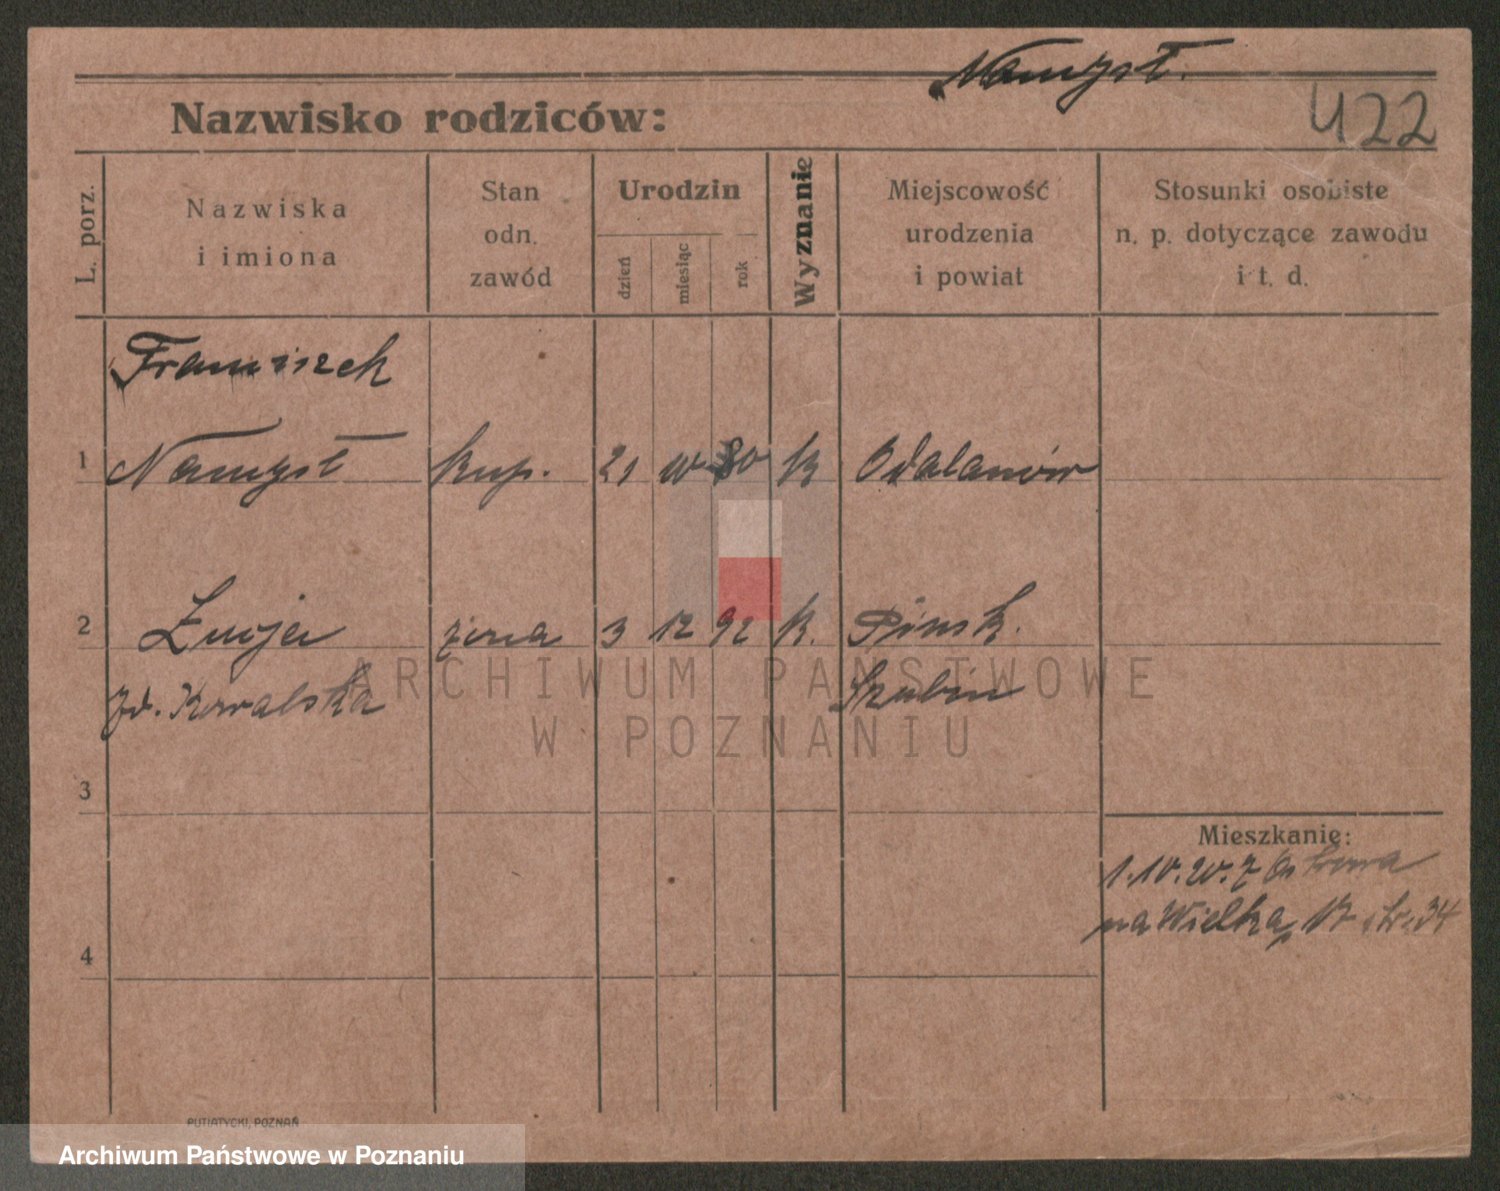 Namysł.
422
Nazwisko rodziców:
L. porz.
Nazwiska
i imiona
Stan
odn.
zawód
Urodzin
dzień
miesiąc
rok
Wyznanie
Miejscowość
urodzenia
i powiat
Stosunki osobiste
n. p. dotyczące zawodu
i t. d.
Franciszek
1 Namysł kup. 21 10 80 k Odolanów
2 Łucja żona 3 12 92 k. Pinsk.
zd. Kowalska Szubin
ARCHIWUM PAŃSTWOWE
W POZNANIU
3
Mieszkanie:
1.10.20. z Ostrowa
na Wielką 17 34
4
PUTIATYCKI, POZNAŃ
Archiwum Państwowe w Poznaniu